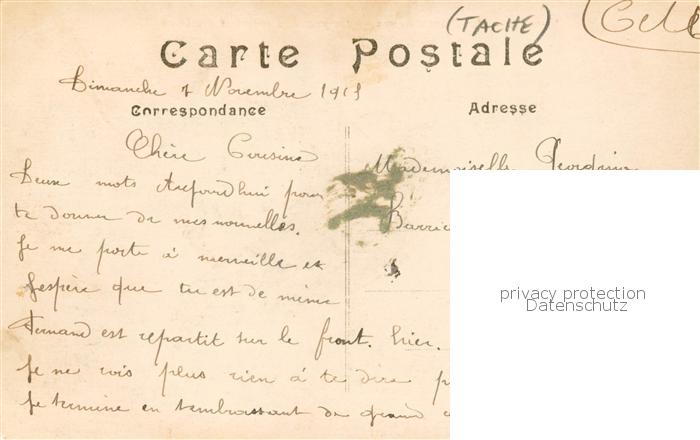 (TACHE)
Carte Postale
Dimanche 7 Novembre 1915
Correspondance
Adresse
Chère Cousine
Deux mots Aujourdhui pour
te donner de mes nouvelles.
Je me porte à merveille et
J'espère que tu est de même
Fernand est repartit sur le front. hier.
Je ne vois plus rien à te dire
Je termine en t'embrassant de grand
Mademoiselle
privacy protection
Datenschutz